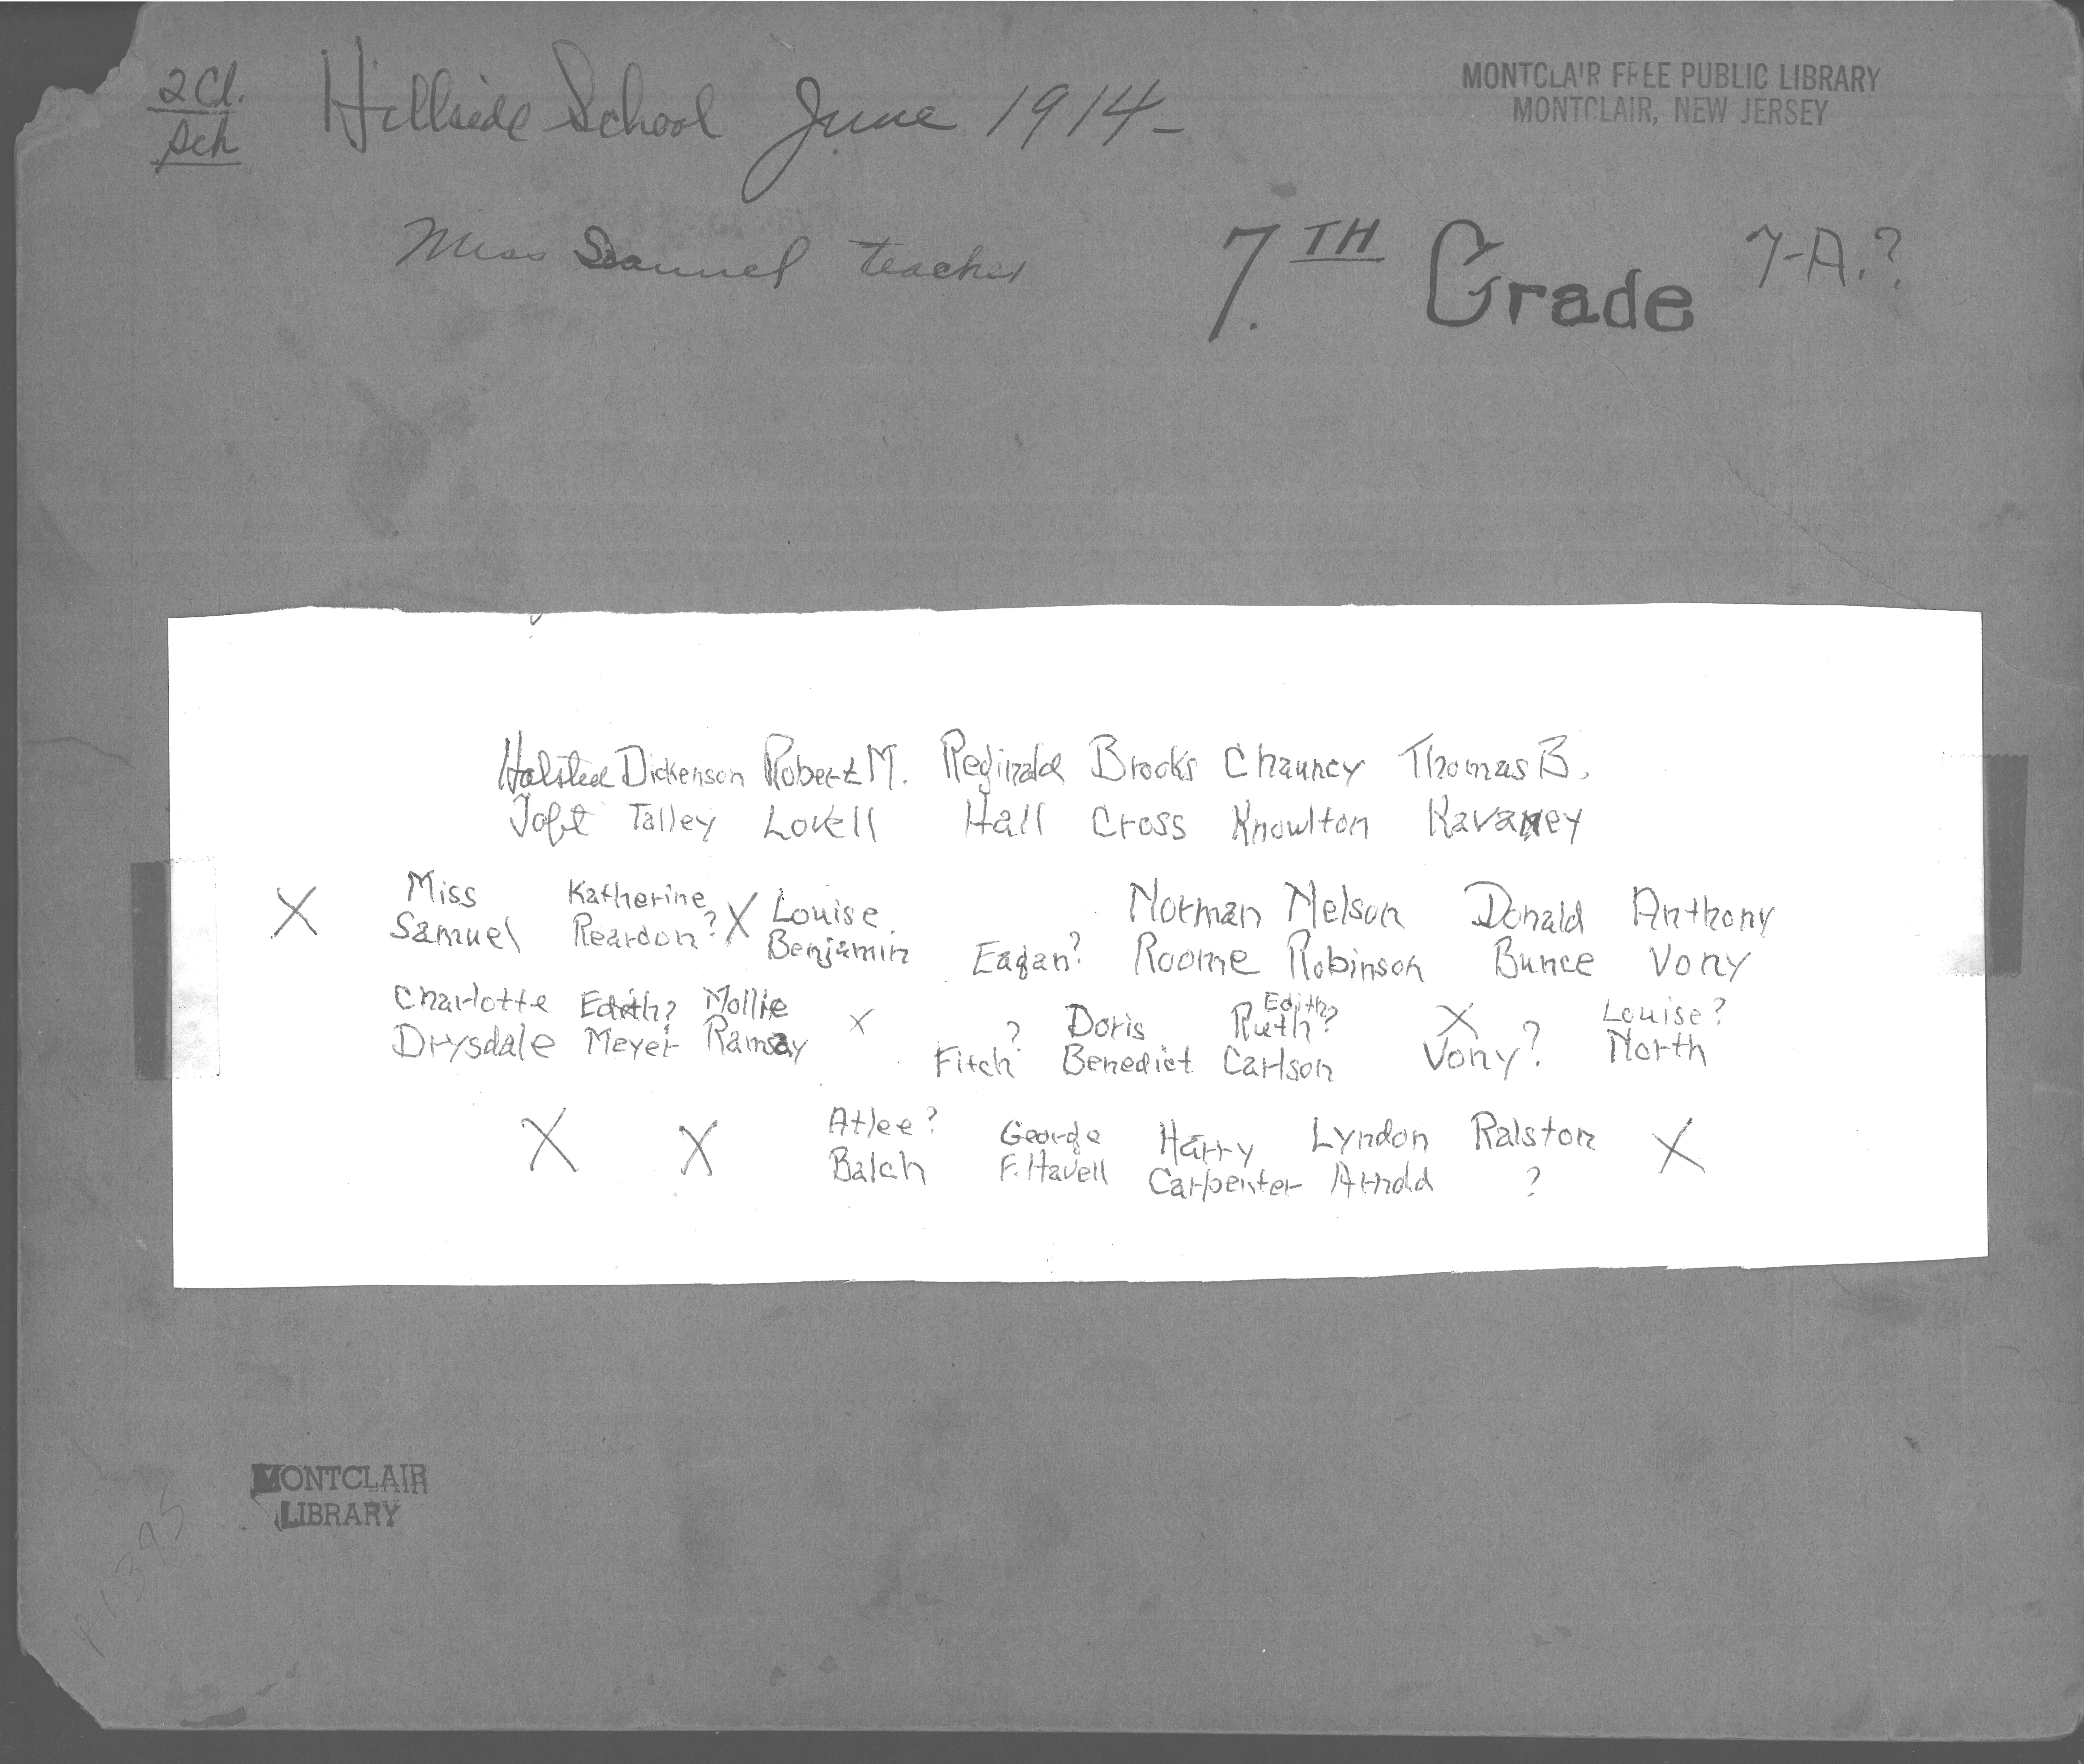 2 Cl.
Sch
Hillside School June 1914-
MONTCLAIR FREE PUBLIC LIBRARY
MONTCLAIR, NEW JERSEY
Miss Samuel teacher
7TH Grade 7-A.?
Halsted Dickenson Robert M. Reginald Brooks Chauncy Thomas B.
Toft Talley Lovell Hall Cross Knowlton Kavaney
X Miss Katherine X Louise Norman Nelson Donald Anthony
Samuel Reardon? Benjamin Eagan? Roome Robinson Bunce Vony
Edith?
Charlotte Edith? Mollie X ? Doris Ruth? X Louise?
Drysdale Meyer Ramsay Fitch Benedict Carlson Vony? North
X X Atlee? George Harry Lyndon Ralston X
Balch F. Havell Carpenter Arnold ?
MONTCLAIR
LIBRARY